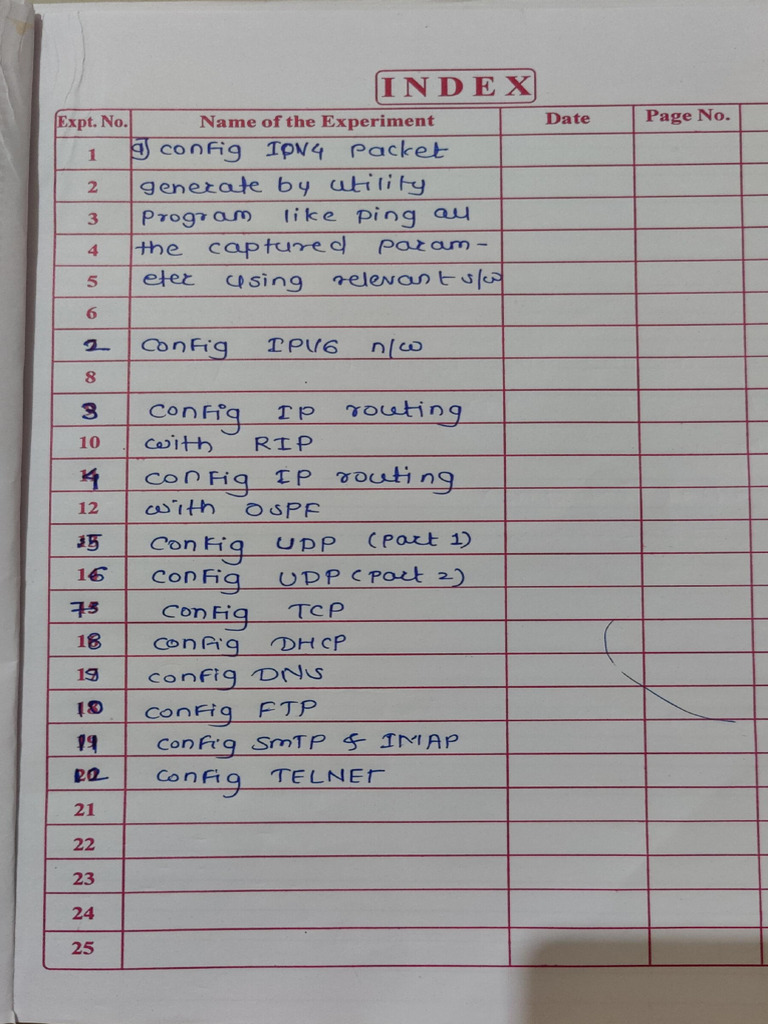 INDEX
Expt. No. Name of the Experiment Date Page No.
1 a) config IPV4 packet
2 generate by utility
3 program like ping all
4 the captured param-
5 eter using relevant s/w
6
2 config IPV6 n/w
8
3 config IP routing
10 with RIP
4 config IP routing
12 with OSPF
5 config UDP (part 1)
6 config UDP (part 2)
7 config TCP
8 config DHCP
9 config DNS
10 config FTP
11 config SMTP & IMAP
12 config TELNET
21
22
23
24
25